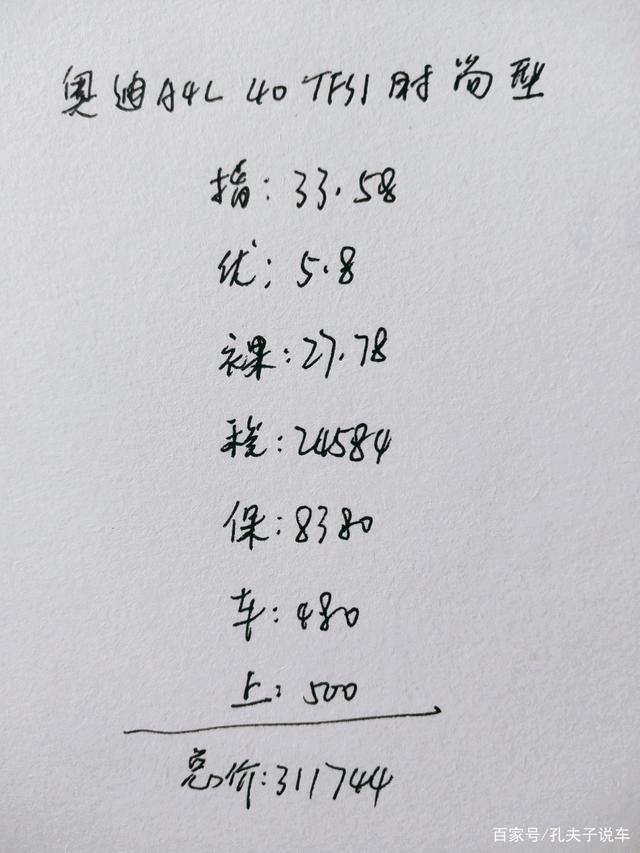 奥迪A4L 40 TFSI时尚型
指:33.58
优:5.8
裸:27.78
税:24584
保:8380
车:480
上:500
总价:311744
百家号/孔夫子说车